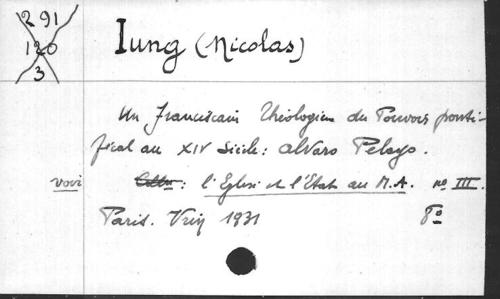 291
120
3
Iung (Nicolas)
Un franciscain théologien du Pouvoir ponti-
fical au XIV Siècle: Alvaro Pelayo.
voir : l'Eglise et l'Etat au M.A. no III.
Paris. Vrin 1931 8o